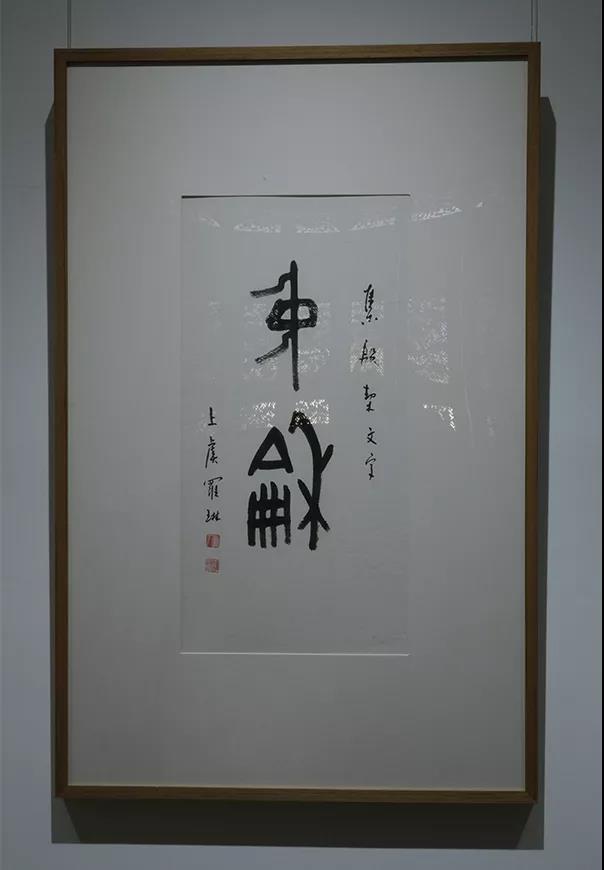 集殷契文字
中龢
上虞羅琳